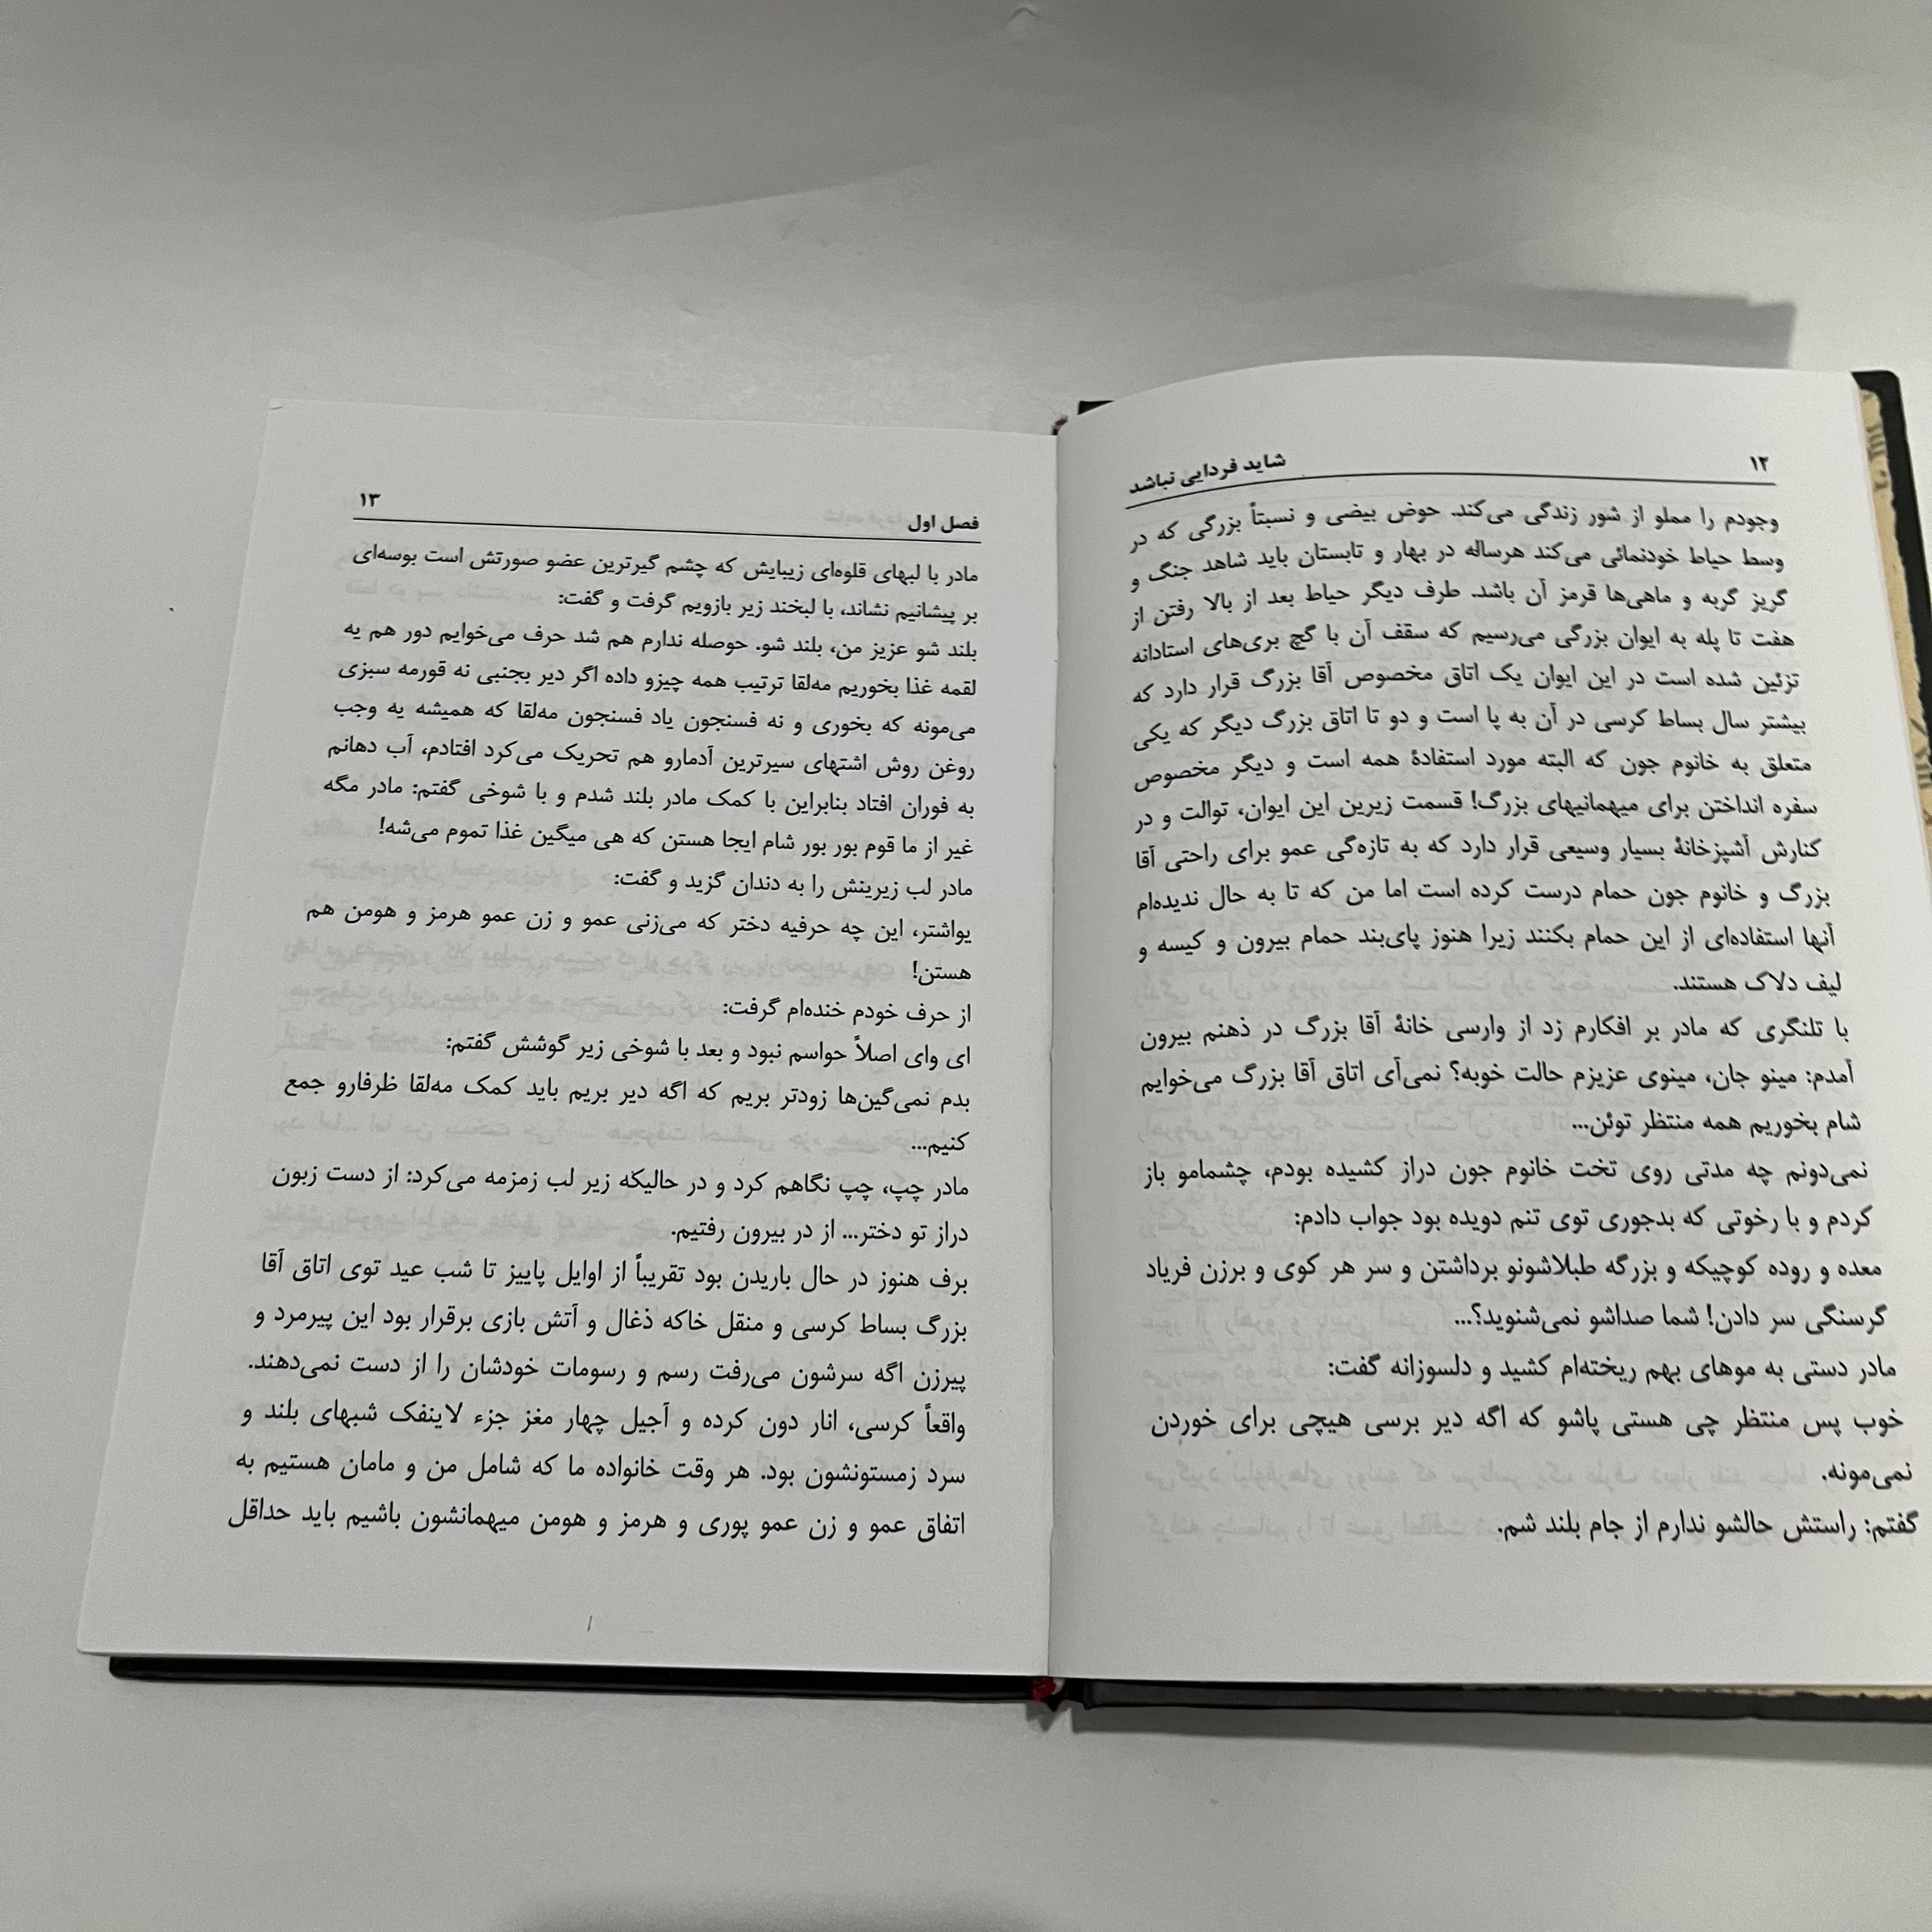 ۱۲
شاید فردایی نباشد
وجودم را مملو از شور زندگی می‌کند. حوض بیضی و نسبتاً بزرگی که در
وسط حیاط خودنمائی می‌کند هرساله در بهار و تابستان باید شاهد جنگ و
گریز گربه و ماهی‌ها قرمز آن باشد. طرف دیگر حیاط بعد از بالا رفتن از
هفت تا پله به ایوان بزرگی می‌رسیم که سقف آن با گچ بری‌های استادانه
تزئین شده است در این ایوان یک اتاق مخصوص آقا بزرگ قرار دارد که
بیشتر سال بساط کرسی در آن به پا است و دو تا اتاق بزرگ دیگر که یکی
متعلق به خانوم جون که البته مورد استفادهٔ همه است و دیگر مخصوص
سفره انداختن برای میهمانیهای بزرگ! قسمت زیرین این ایوان، توالت و در
کنارش آشپزخانهٔ بسیار وسیعی قرار دارد که به تازه‌گی عمو برای راحتی آقا
بزرگ و خانوم جون حمام درست کرده است اما من که تا به حال ندیده‌ام
آنها استفاده‌ای از این حمام بکنند زیرا هنوز پای‌بند حمام بیرون و کیسه و
لیف دلاک هستند.
با تلنگری که مادر بر افکارم زد از وارسی خانهٔ آقا بزرگ در ذهنم بیرون
آمدم: مینو جان، مینوی عزیزم حالت خوبه؟ نمی‌آی اتاق آقا بزرگ می‌خوایم
شام بخوریم همه منتظر توئن...
نمی‌دونم چه مدتی روی تخت خانوم جون دراز کشیده بودم، چشمامو باز
کردم و با رخوتی که بدجوری توی تنم دویده بود جواب دادم:
معده و روده کوچیکه و بزرگه طبلاشونو برداشتن و سر هر کوی و برزن فریاد
گرسنگی سر دادن! شما صداشو نمی‌شنوید؟...
مادر دستی به موهای بهم ریخته‌ام کشید و دلسوزانه گفت:
خوب پس منتظر چی هستی پاشو که اگه دیر برسی هیچی برای خوردن
نمی‌مونه.
گفتم: راستش حالشو ندارم از جام بلند شم.
فصل اول
۱۳
مادر با لبهای قلوه‌ای زیبایش که چشم گیرترین عضو صورتش است بوسه‌ای
بر پیشانیم نشاند، با لبخند زیر بازویم گرفت و گفت:
بلند شو عزیز من، بلند شو. حوصله ندارم هم شد حرف می‌خوایم دور هم یه
لقمه غذا بخوریم مه‌لقا ترتیب همه چیزو داده اگر دیر بجنبی نه قورمه سبزی
می‌مونه که بخوری و نه فسنجون یاد فسنجون مه‌لقا که همیشه یه وجب
روغن روش اشتهای سیرترین آدمارو هم تحریک می‌کرد افتادم، آب دهانم
به فوران افتاد بنابراین با کمک مادر بلند شدم و با شوخی گفتم: مادر مگه
غیر از ما قوم بور بور شام ایجا هستن که هی میگین غذا تموم می‌شه!
مادر لب زیرینش را به دندان گزید و گفت:
یواشتر، این چه حرفیه دختر که می‌زنی عمو و زن عمو هرمز و هومن هم
هستن!
از حرف خودم خنده‌ام گرفت:
ای وای اصلاً حواسم نبود و بعد با شوخی زیر گوشش گفتم:
بدم نمی‌گین‌ها زودتر بریم که اگه دیر بریم باید کمک مه‌لقا ظرفارو جمع
کنیم...
مادر چپ، چپ نگاهم کرد و در حالیکه زیر لب زمزمه می‌کرد: از دست زبون
دراز تو دختر... از در بیرون رفتیم.
برف هنوز در حال باریدن بود تقریباً از اوایل پاییز تا شب عید توی اتاق آقا
بزرگ بساط کرسی و منقل خاکه ذغال و آتش بازی برقرار بود این پیرمرد و
پیرزن اگه سرشون می‌رفت رسم و رسومات خودشان را از دست نمی‌دهند.
واقعاً کرسی، انار دون کرده و آجیل چهار مغز جزء لاینفک شبهای بلند و
سرد زمستونشون بود. هر وقت خانواده ما که شامل من و مامان هستیم به
اتفاق عمو و زن عمو پوری و هرمز و هومن میهمانشون باشیم باید حداقل